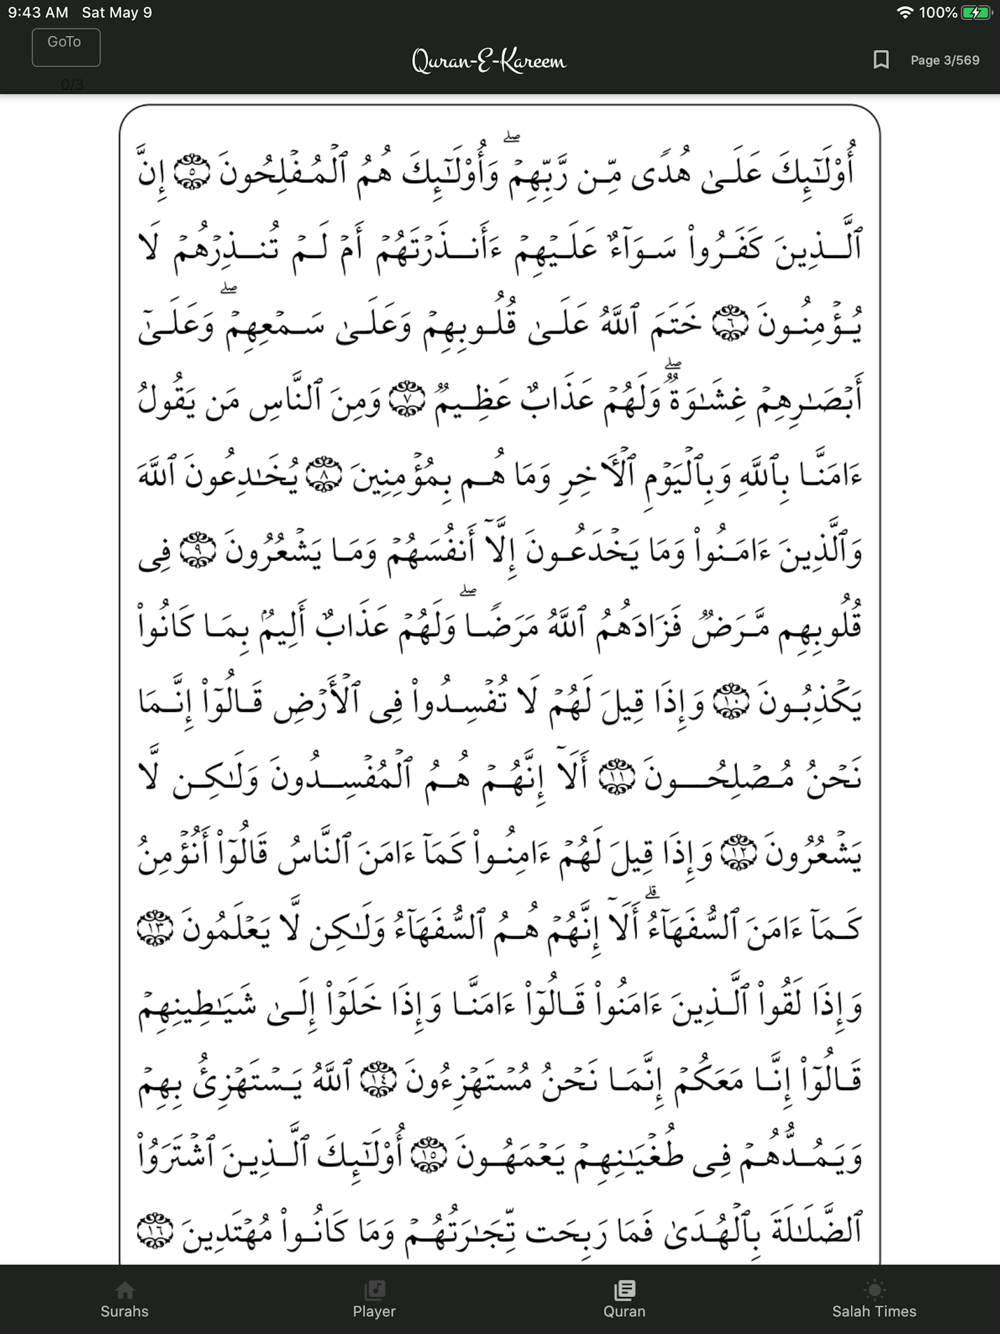 9:43 AM Sat May 9 100%
GoTo
0/3
Quran-E-Kareem
Page 3/569
أُوْلَـٰٓئِكَ عَلَىٰ هُدٗى مِّن رَّبِّهِمۡۖ وَأُوْلَـٰٓئِكَ هُمُ ٱلۡمُفۡلِحُونَ ٥ إِنَّ
ٱلَّذِينَ كَفَرُواْ سَوَآءٌ عَلَيۡهِمۡ ءَأَنذَرۡتَهُمۡ أَمۡ لَمۡ تُنذِرۡهُمۡ لَا
يُؤۡمِنُونَ ٦ خَتَمَ ٱللَّهُ عَلَىٰ قُلُوبِهِمۡ وَعَلَىٰ سَمۡعِهِمۡۖ وَعَلَىٰٓ
أَبۡصَـٰرِهِمۡ غِشَـٰوَةٞۖ وَلَهُمۡ عَذَابٌ عَظِيمٞ ٧ وَمِنَ ٱلنَّاسِ مَن يَقُولُ
ءَامَنَّا بِٱللَّهِ وَبِٱلۡيَوۡمِ ٱلۡأٓخِرِ وَمَا هُم بِمُؤۡمِنِينَ ٨ يُخَـٰدِعُونَ ٱللَّهَ
وَٱلَّذِينَ ءَامَنُواْ وَمَا يَخۡدَعُونَ إِلَّآ أَنفُسَهُمۡ وَمَا يَشۡعُرُونَ ٩ فِي
قُلُوبِهِم مَّرَضٞ فَزَادَهُمُ ٱللَّهُ مَرَضٗاۖ وَلَهُمۡ عَذَابٌ أَلِيمُۢ بِمَا كَانُواْ
يَكۡذِبُونَ ١٠ وَإِذَا قِيلَ لَهُمۡ لَا تُفۡسِدُواْ فِي ٱلۡأَرۡضِ قَالُوٓاْ إِنَّمَا
نَحۡنُ مُصۡلِحُونَ ١١ أَلَآ إِنَّهُمۡ هُمُ ٱلۡمُفۡسِدُونَ وَلَـٰكِن لَّا
يَشۡعُرُونَ ١٢ وَإِذَا قِيلَ لَهُمۡ ءَامِنُواْ كَمَآ ءَامَنَ ٱلنَّاسُ قَالُوٓاْ أَنُؤۡمِنُ
كَمَآ ءَامَنَ ٱلسُّفَهَآءُۗ أَلَآ إِنَّهُمۡ هُمُ ٱلسُّفَهَآءُ وَلَـٰكِن لَّا يَعۡلَمُونَ ١٣
وَإِذَا لَقُواْ ٱلَّذِينَ ءَامَنُواْ قَالُوٓاْ ءَامَنَّا وَإِذَا خَلَوۡاْ إِلَىٰ شَيَـٰطِينِهِمۡ
قَالُوٓاْ إِنَّا مَعَكُمۡ إِنَّمَا نَحۡنُ مُسۡتَهۡزِءُونَ ١٤ ٱللَّهُ يَسۡتَهۡزِئُ بِهِمۡ
وَيَمُدُّهُمۡ فِي طُغۡيَـٰنِهِمۡ يَعۡمَهُونَ ١٥ أُوْلَـٰٓئِكَ ٱلَّذِينَ ٱشۡتَرَوُاْ
ٱلضَّلَـٰلَةَ بِٱلۡهُدَىٰ فَمَا رَبِحَت تِّجَـٰرَتُهُمۡ وَمَا كَانُواْ مُهۡتَدِينَ ١٦
Surahs Player Quran Salah Times